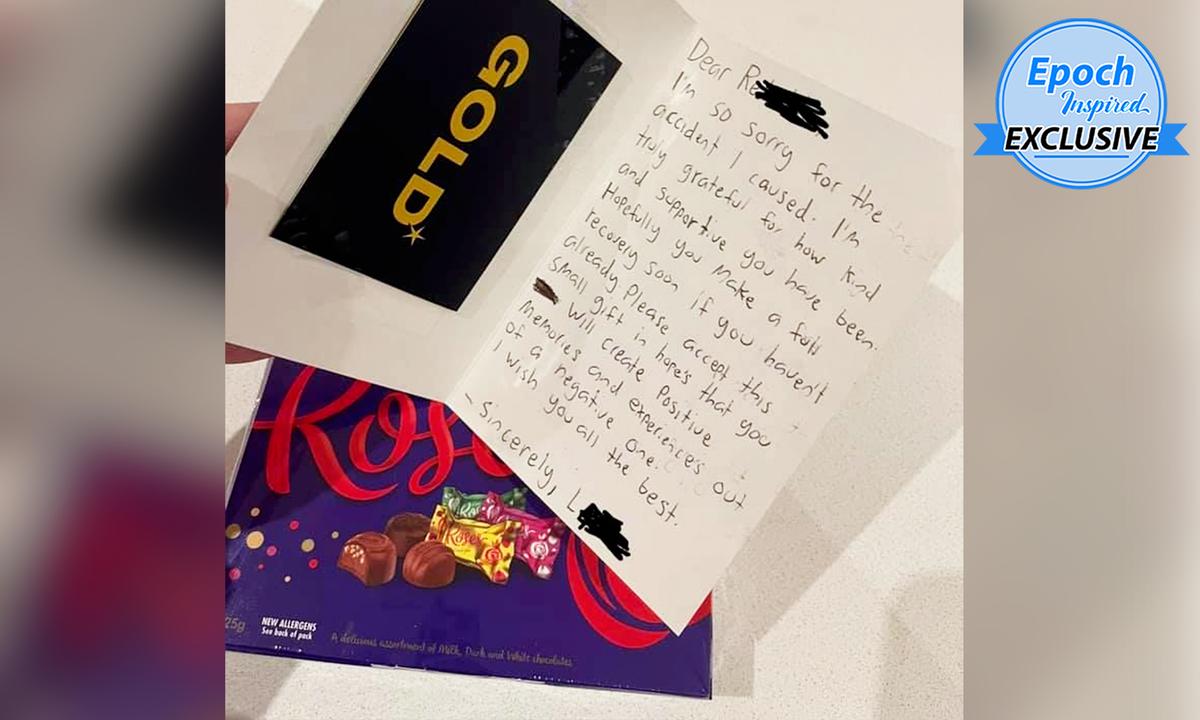 Epoch
Inspired
EXCLUSIVE
GOLD
Dear Re
I'm so sorry for the
accident I caused. I'm
truly grateful for how kind
and supportive you have been.
Hopefully you make a full
recovery soon if you haven't
already Please accept this
small gift in hope's that you
will create positive
memories and experience's out
of a negative one.
I wish you all the best.
- Sincerely, L
Roses
Roses
25g
NEW ALLERGENS
See back of pack
A delicious assortment of Milk, Dark and White chocolates